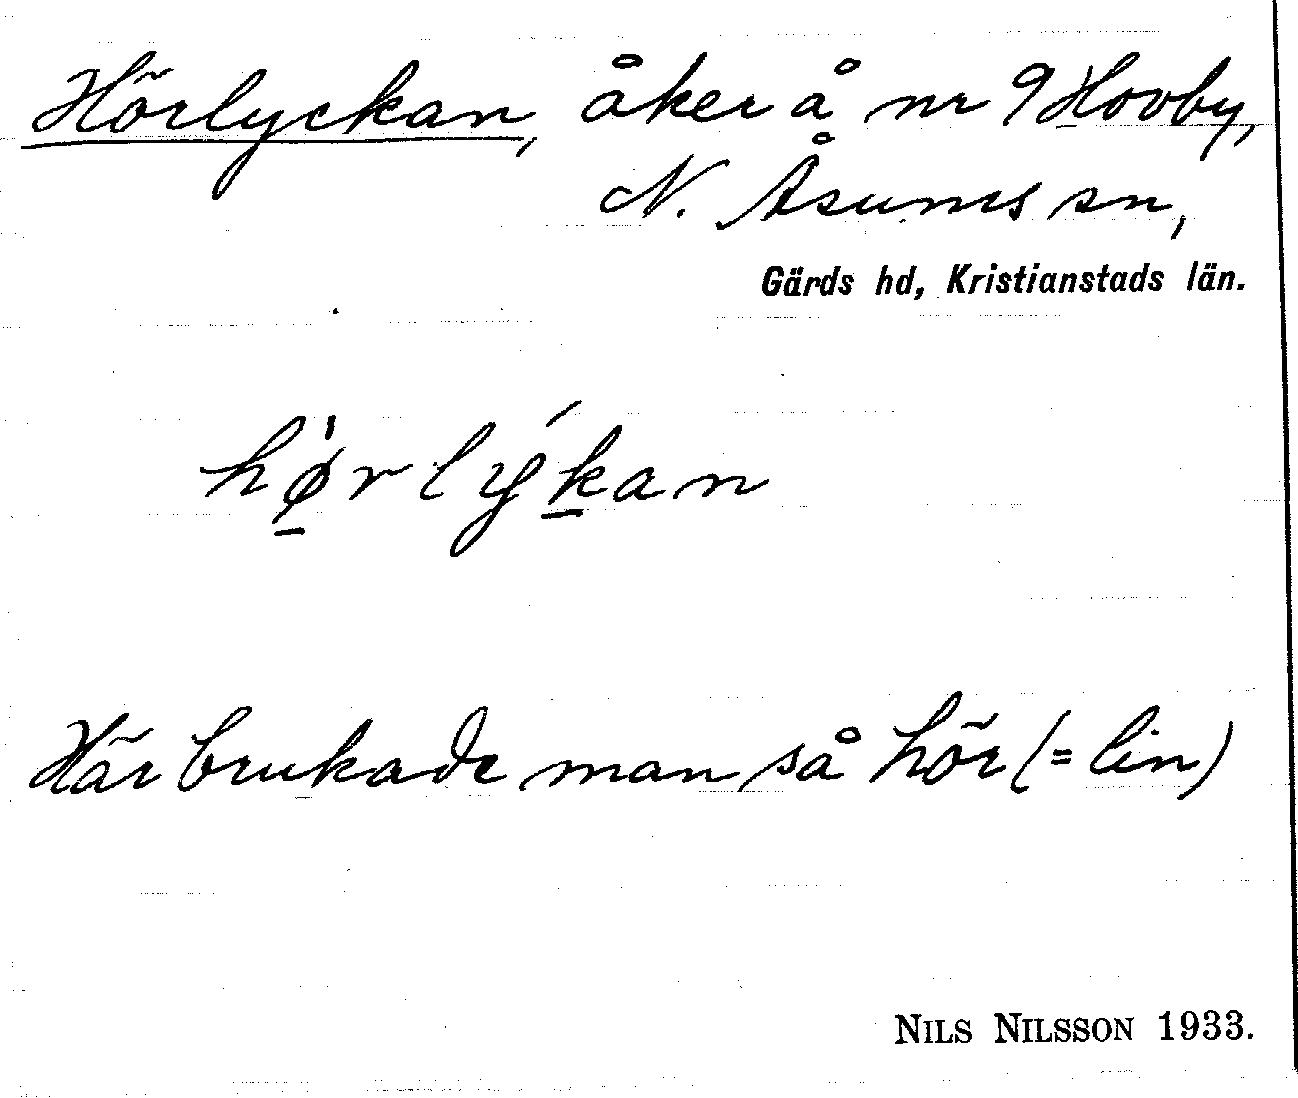 Hörlyckan, åker å nr 9 Hovby,
N. Åsums sn,
Gärds hd, Kristianstads län.
hø̱̍rlýḵan
Här brukade man så hör (= lin)
NILS NILSSON 1933.